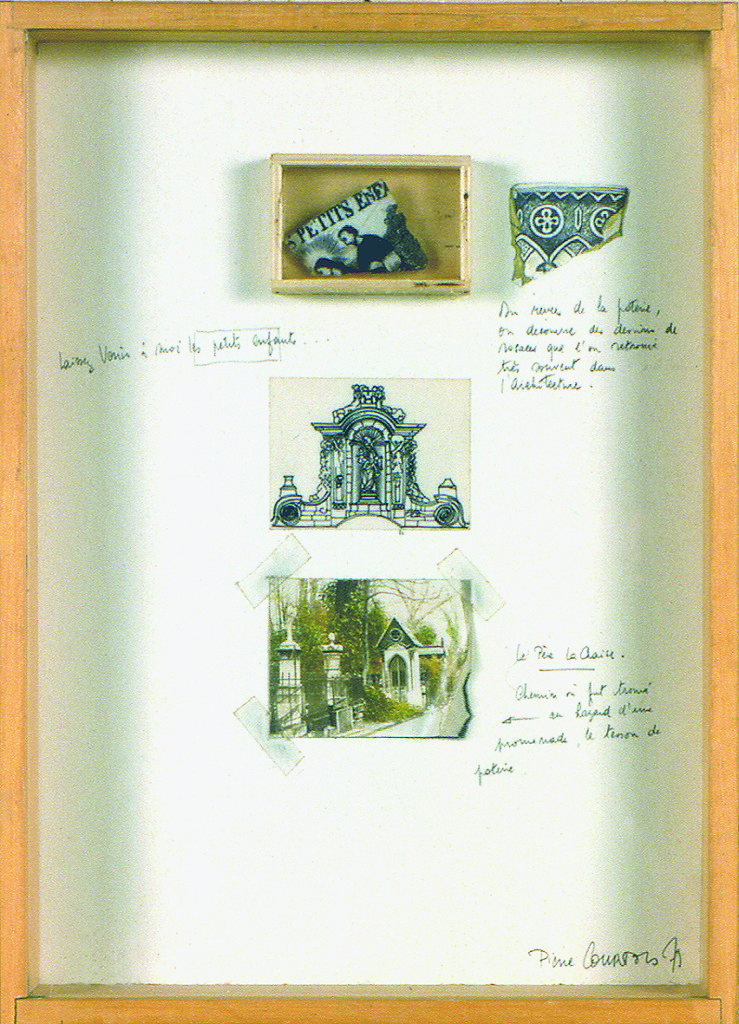 S PETITS ENFA
Laissez Venir à moi les petits enfants . . .
Au revers de la poterie,
on découvre des dessins de
rosaces que l'on retrouve
très souvent dans
l'Architecture.
Le Père La Chaise.
Chemin où fut trouvé
au hazard d'une
promenade, le tesson de
poterie.
Pierre COURTOIS 79